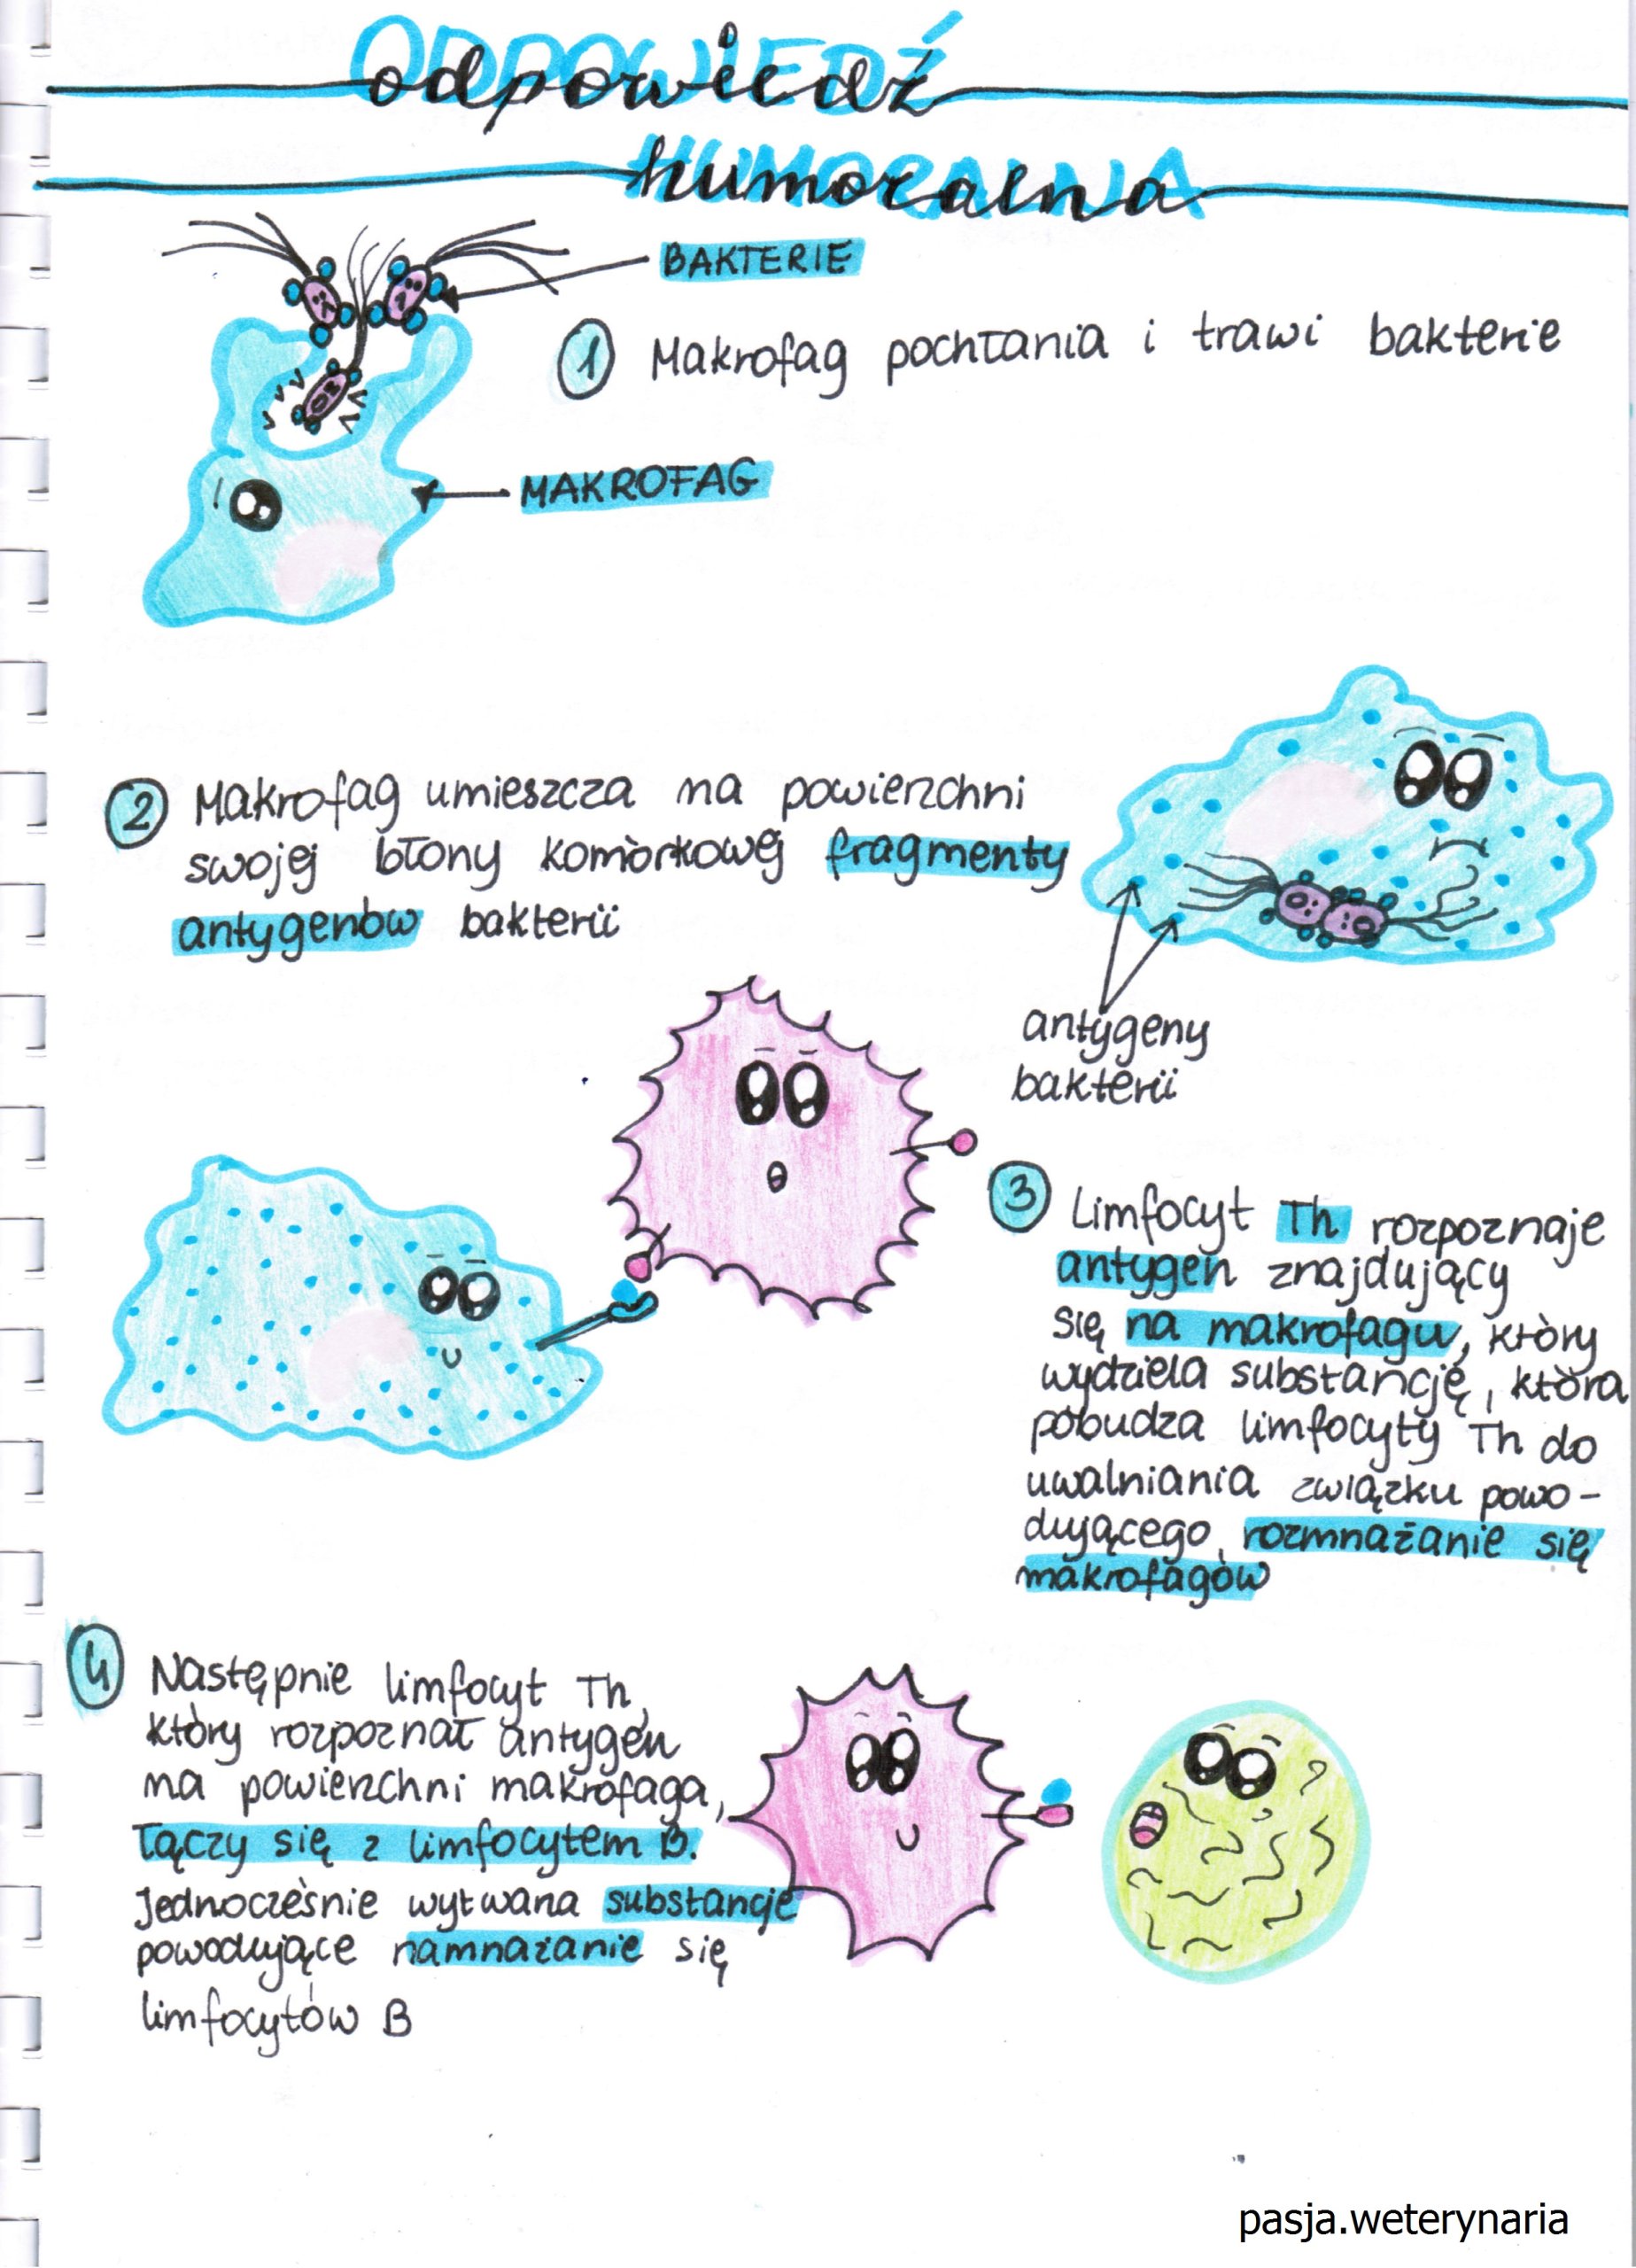 ODPOWIEDŹ
odpowiedź
HUMORALNA
humoralna
BAKTERIE
1 Makrofag pochłania i trawi bakterie
MAKROFAG
2 Makrofag umieszcza na powierzchni
swojej błony komórkowej fragmenty
antygenów bakterii
antygeny
bakterii
3 Limfocyt Th rozpoznaje
antygen znajdujący
się na makrofagu, który
wydziela substancję, która
pobudza limfocyty Th do
uwalniania związku powo-
dującego rozmnażanie się
makrofagów
4 Następnie limfocyt Th,
który rozpoznał antygen
na powierzchni makrofaga,
łączy się z limfocytem B.
Jednocześnie wytwarza substancje
powodujące namnażanie się
limfocytów B
pasja.weterynaria